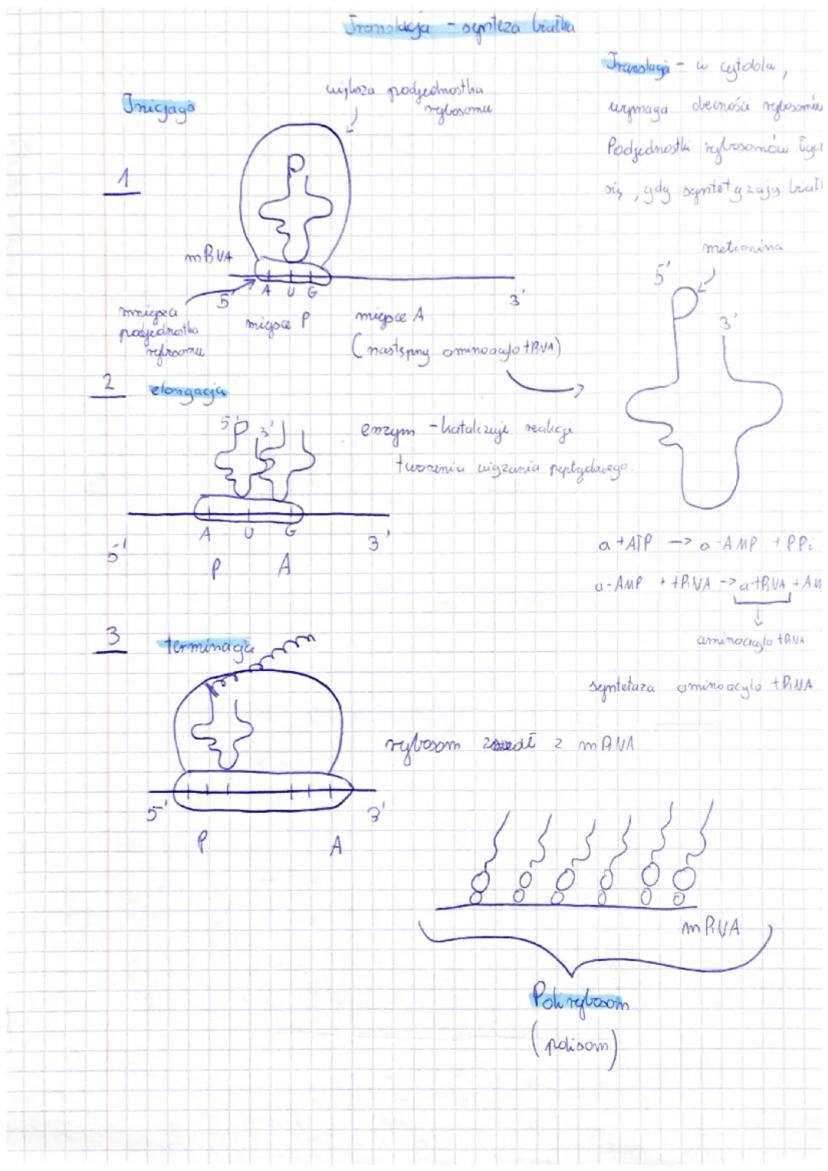 Translacja - synteza białka
Translacja - w cytozolu,
wymaga obecności rybosomów
Podjednostki rybosomów
się, gdy syntetyzują
Inicjacja
większa podjednostka
rybosomu
1
mRNA
5'
A U G
3'
mniejsza
podjednostka
rybosomu
miejsce P
miejsce A
(następny aminoacylo tRNA)
metionina
5'
3'
2 elongacja
5' 3'
enzym - katalizuje reakcje
tworzenia wiązania peptydowego
5'
A U G
3'
P A
a + ATP -> a-AMP + PPi
a-AMP + tRNA -> a-tRNA +
aminoacylo tRNA
syntetaza aminoacylo tRNA
3 terminacja
rybosom zszedł z mRNA
5' 3'
P A
mRNA
Polirybosom
(polisom)